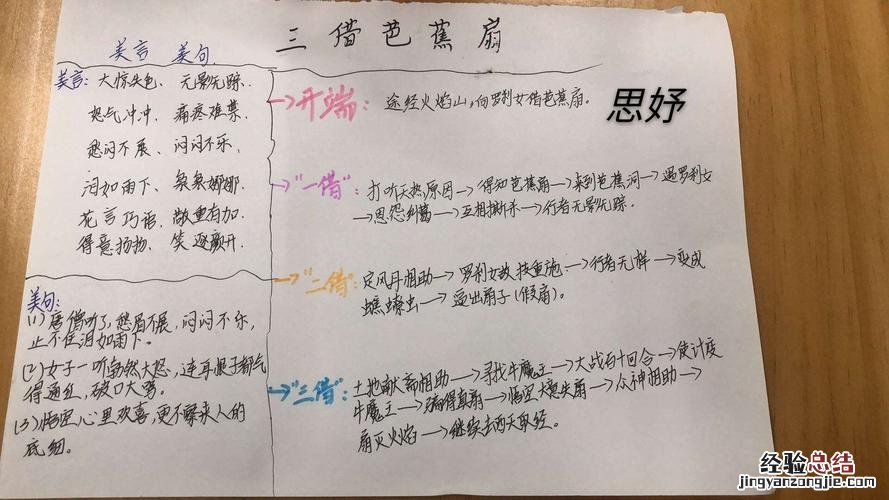 三借芭蕉扇
美言 美句
美言：大惊失色、无影无踪、
怒气冲冲、痛疼难禁、
愁闷不展、闷闷不乐、
泪如雨下、袅袅娜娜、
花言巧语、敬重有加、
得意扬扬、笑逐颜开、
美句：
(1)唐僧听了，愁眉不展，闷闷不乐，
止不住泪如雨下。
(2)女子一听勃然大怒，连耳根子都气
得通红，破口大骂。
(3)悟空心里欢喜，更不曝来人的
底细。
→开端：途经火焰山，向罗刹女借芭蕉扇。
思妤
→"一借"：打听天热原因→得知芭蕉扇→来到芭蕉洞→遇罗刹女
→恩怨纠葛→互相撕杀→行者无影无踪。
→"二借"：定风丹相助→罗刹女故技重施→行者无样→变成
蟭蟟虫→逼出扇子(假扇)。
→"三借"：土地献斋相助→寻找牛魔王→大战百十回合→使计变
牛魔王→骗得真扇→悟空大意失扇→众神相助→
扇灭火焰→继续去西天取经。
经验总结
jingyanzongjie.com